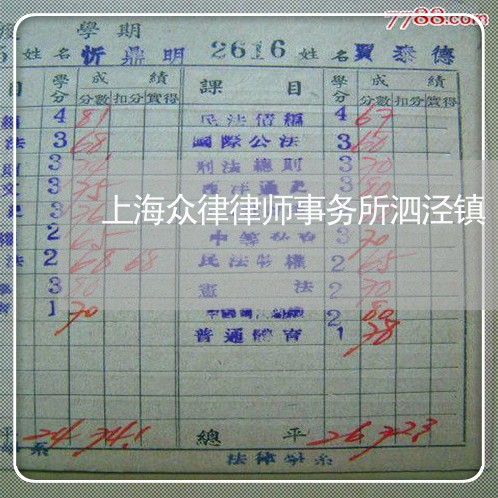 7788.com
學期
姓名 忻鼎明 2616 姓名 賈泰德
目 學分 成績 課目 學分 成績
分數 扣分 實得 分數 扣分 實得
4 81 民法債編 4 67
法 3 68 國際公法 3 60
3 刑法總則 3 70
3 75 西洋通史 3 80
上海众律律师事务所泗泾镇
2 65 3 70
法 2 68 68 民法物權 2 65
3 80 憲法 2 70
1 70 2 80
普通體育 1 78
平 24 74.1 總平 26 72.3
系 法律學系